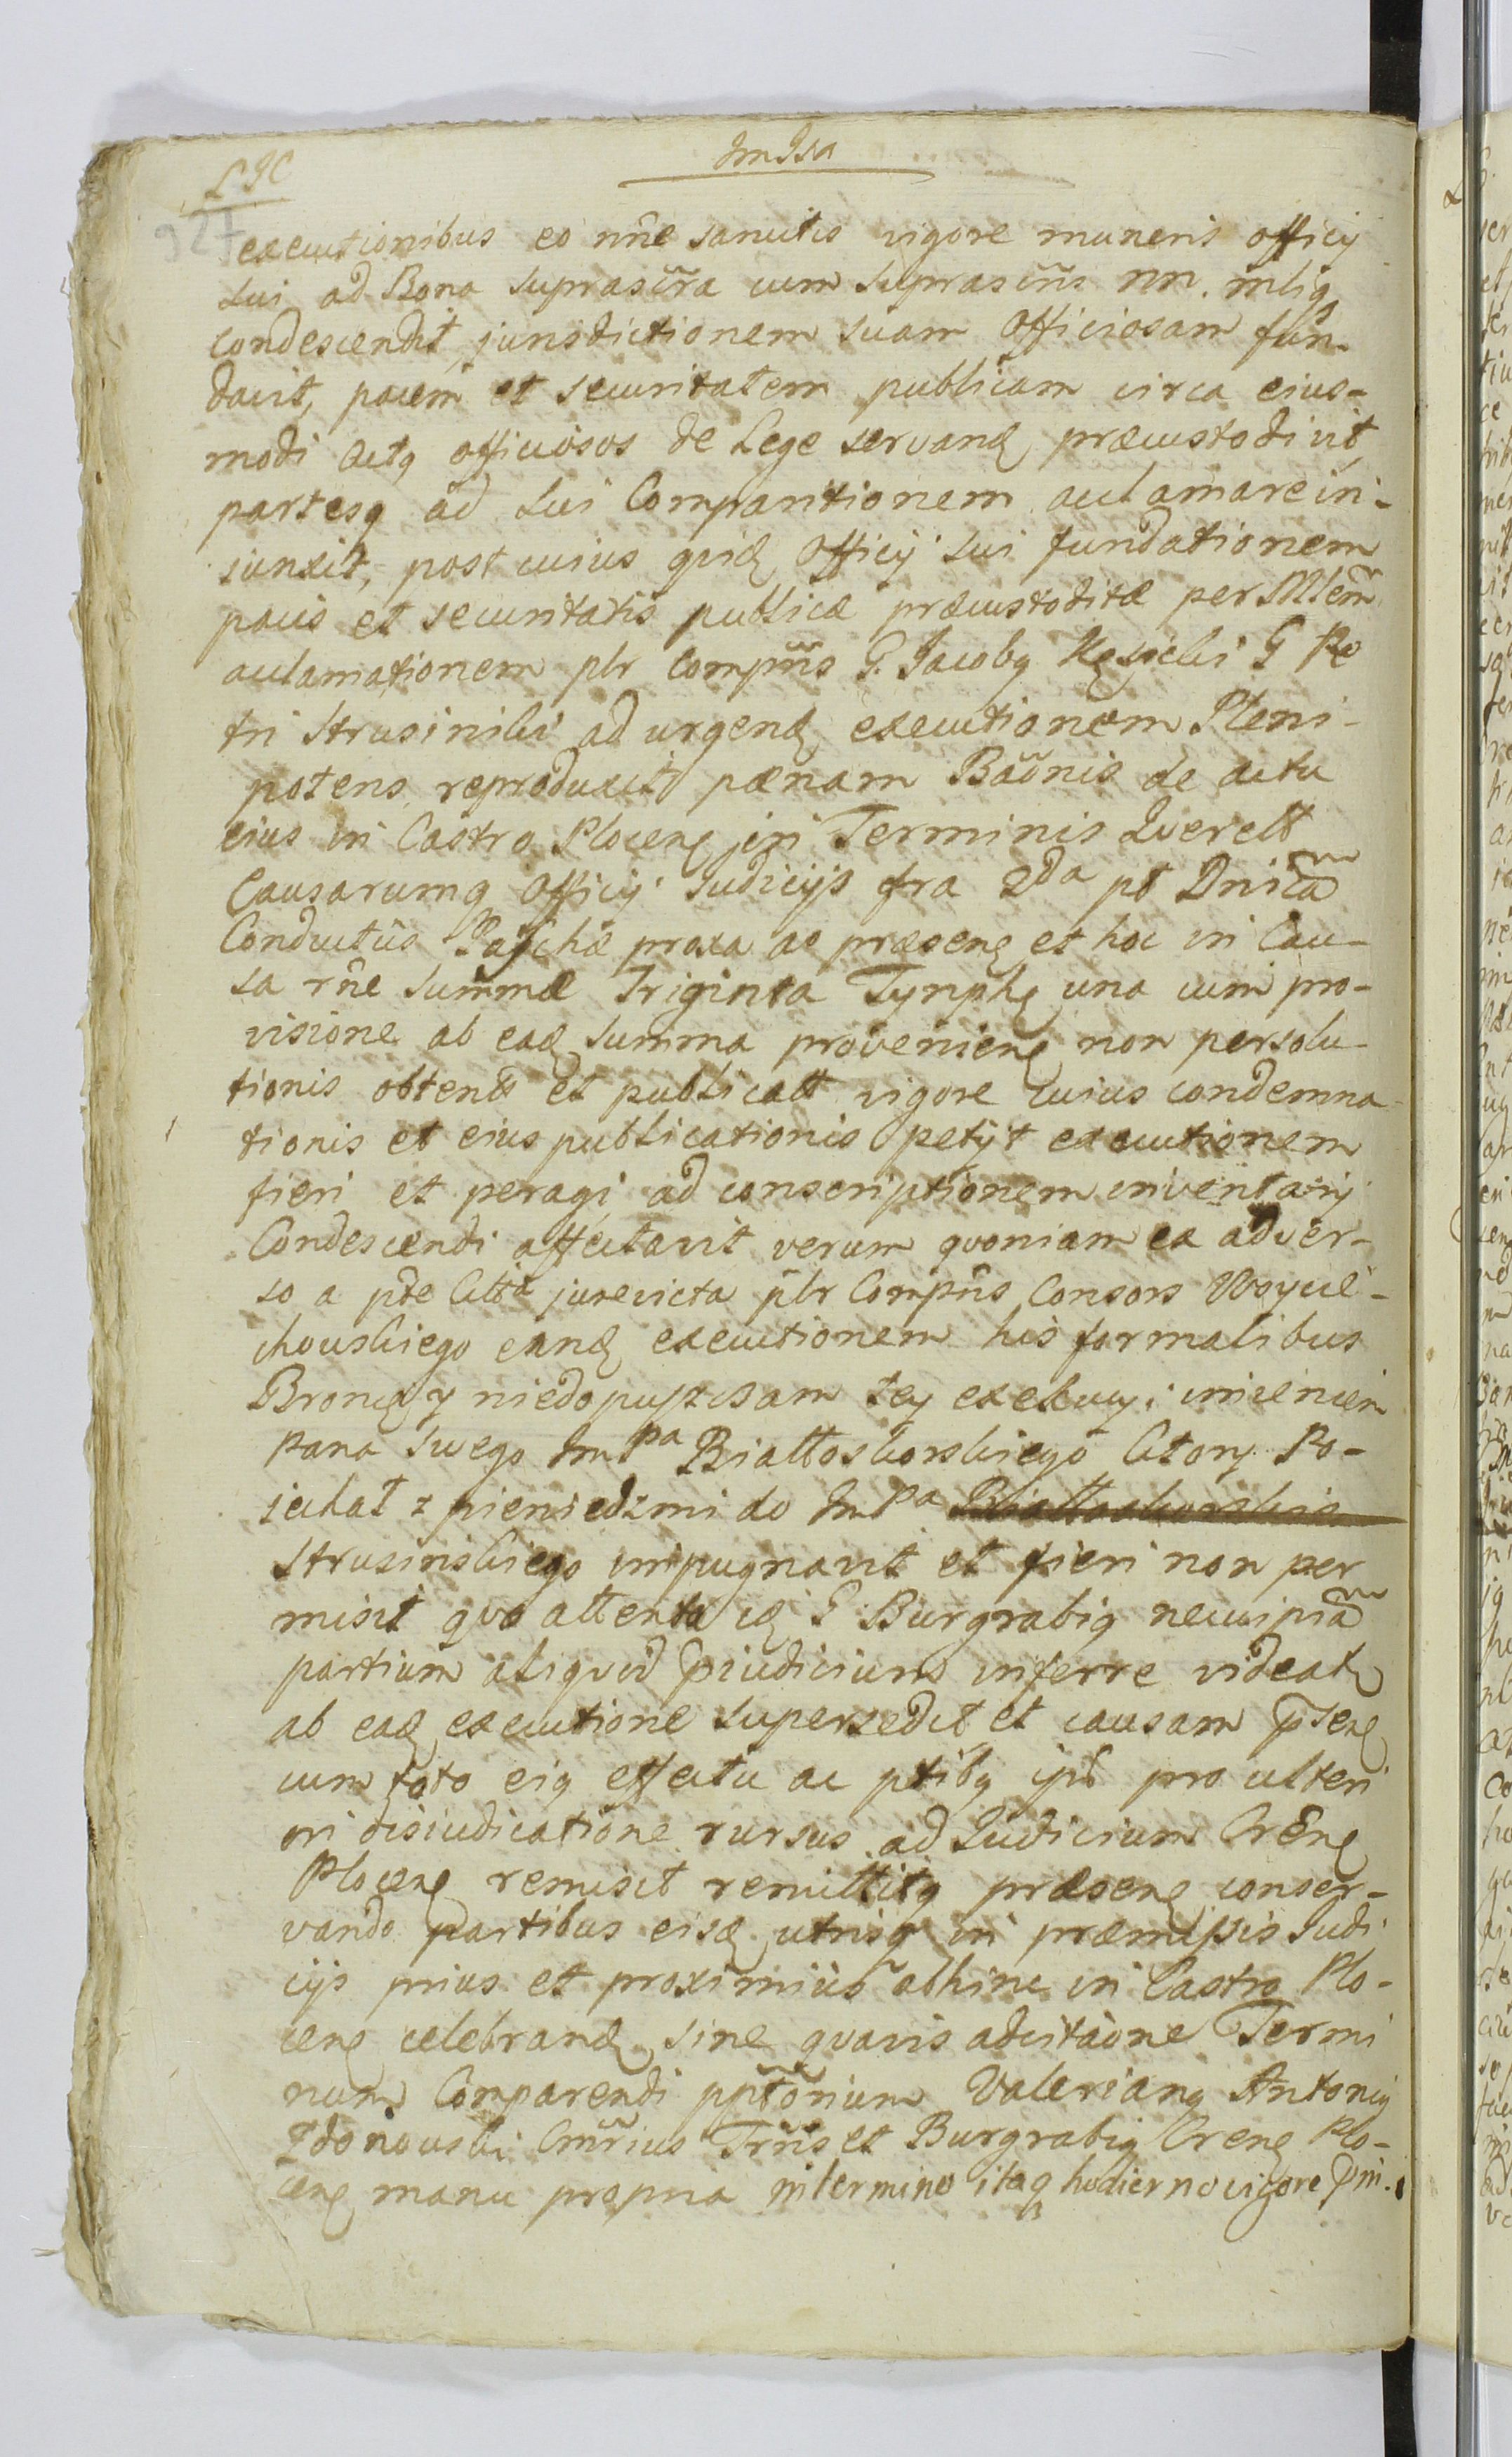 927
executionibus eo nñe sancitis vigore muneris officij
sui ad Bona suprascr̃a cum suprascr̃is nn. mlig
condescendit, jurisdictionem suam Officiosam fun-
davit, pacem et securitatem publicam circa eius-
modi actq officiosos de Lege servand praecustodivit,
partesq ad sui Comparitionem acclamare in-
iunxit, post cuius quid Officij sui fundationem
pacis et securitatis publicae praecustoditae per Mlem
acclamationem plr Compñs G. Jacobq G Pe
tri Strusinski ad urgend executionem Pleni-
potens reproduxit paenam Bãõnis de actu
eius in Castro Plocen in Terminis Querell
Causarumq Officij Judicijs fra 2da pt Dnicam
Conductus Paschae proxa ac praesen et hoc in Cau-
sa rñe summae Triginta Tymph una cum pro-
visione ab ead summa provenien non persolu-
tionis obtent et publicatt vigore cuius condemna-
tionis et eius publicationis petijt executionem
fieri et peragi ad conscriptionem inventarij
Condescendi affectavit verum quoniam ex adver-
so a pte Cttta jurevicta plr Compñs Consors Woycie-
chowskiego eand executionem his formalibus
Bronię y niedopuszczam tey exekucyi imieniem
Pana swego ImPa Białłoskorskiego ktory Po-
jechał z pieniedzmi do ImPa Białłoskorskie
Strusinskiego impugnavit et fieri non per
misit quo attento id G Burgrabiq
partium aliquid pjudicium inferre videat
ab ead executione supersedit et causam psen
cum toto eiq effectu ac ptibq ips pro ulteri
ori disiudicatione rursus ad Judicium Cren
Plocen remisit remittitq praesen conser-
vando partibus eisd utrisq in praemissis Judi
cijs prius et proximius abhinc in Castro Plo-
cen celebrand sine quavis adcitaõne Termi
num Comparendi pptõrium Valerianq Antoniq
Zdonowski Cmr̃ius Trr̃is et Burgrabiq Cren Plo-
cen manu propria in termino itaq hodierno vigore pm.